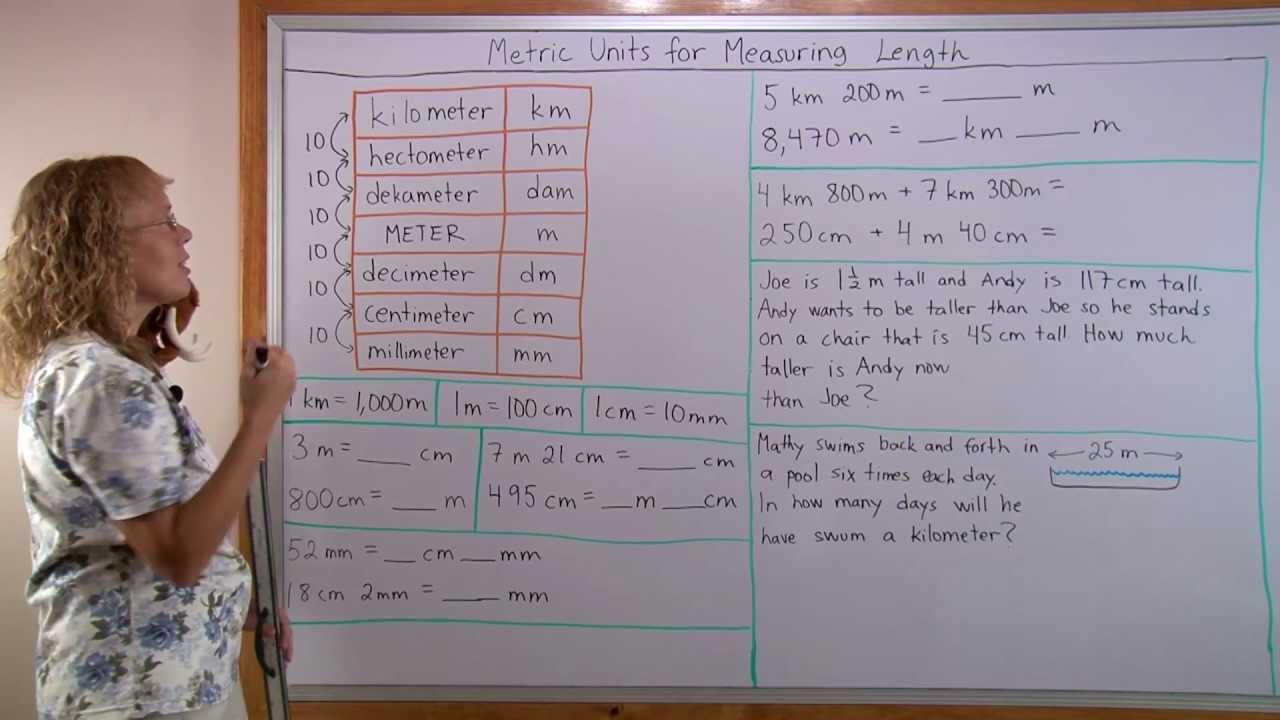 Metric Units for Measuring Length
kilometer km
10
hectometer hm
10
dekameter dam
10
METER m
10
decimeter dm
10
centimeter cm
10
millimeter mm
1 km = 1,000m
1m = 100 cm
1cm = 10mm
3 m = ____ cm
800cm = ___ m
7 m 21 cm = ____ cm
495 cm = __m ___cm
52 mm = __ cm __ mm
18 cm 2mm = ____ mm
5 km 200m = _____ m
8,470 m = __ km ____ m
4 km 800m + 7 km 300m =
250cm + 4 m 40 cm =
Joe is 1 1/2 m tall and Andy is 117cm tall.
Andy wants to be taller than Joe so he stands
on a chair that is 45 cm tall. How much
taller is Andy now
than Joe?
Mathy swims back and forth in
a pool six times each day.
In how many days will he
have swum a kilometer?
25 m